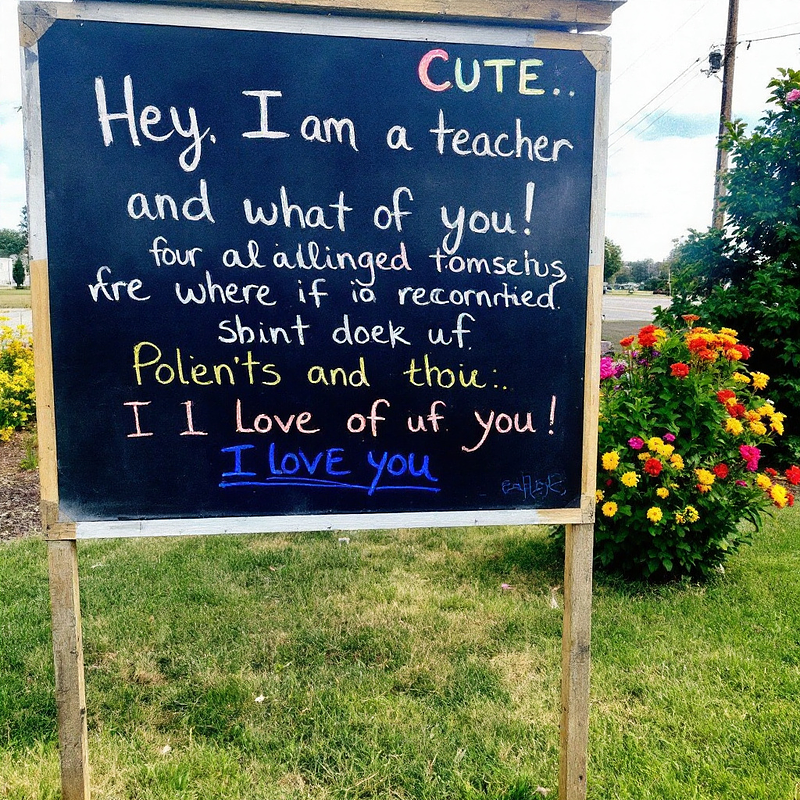 CUTE..
Hey. I am a teacher
and what of you!
four al allinged tomseius,
Are where if io recorntied.
sbint doek uf
Polien'ts and thou:.
I 1 Love of uf you!
I LOVE you